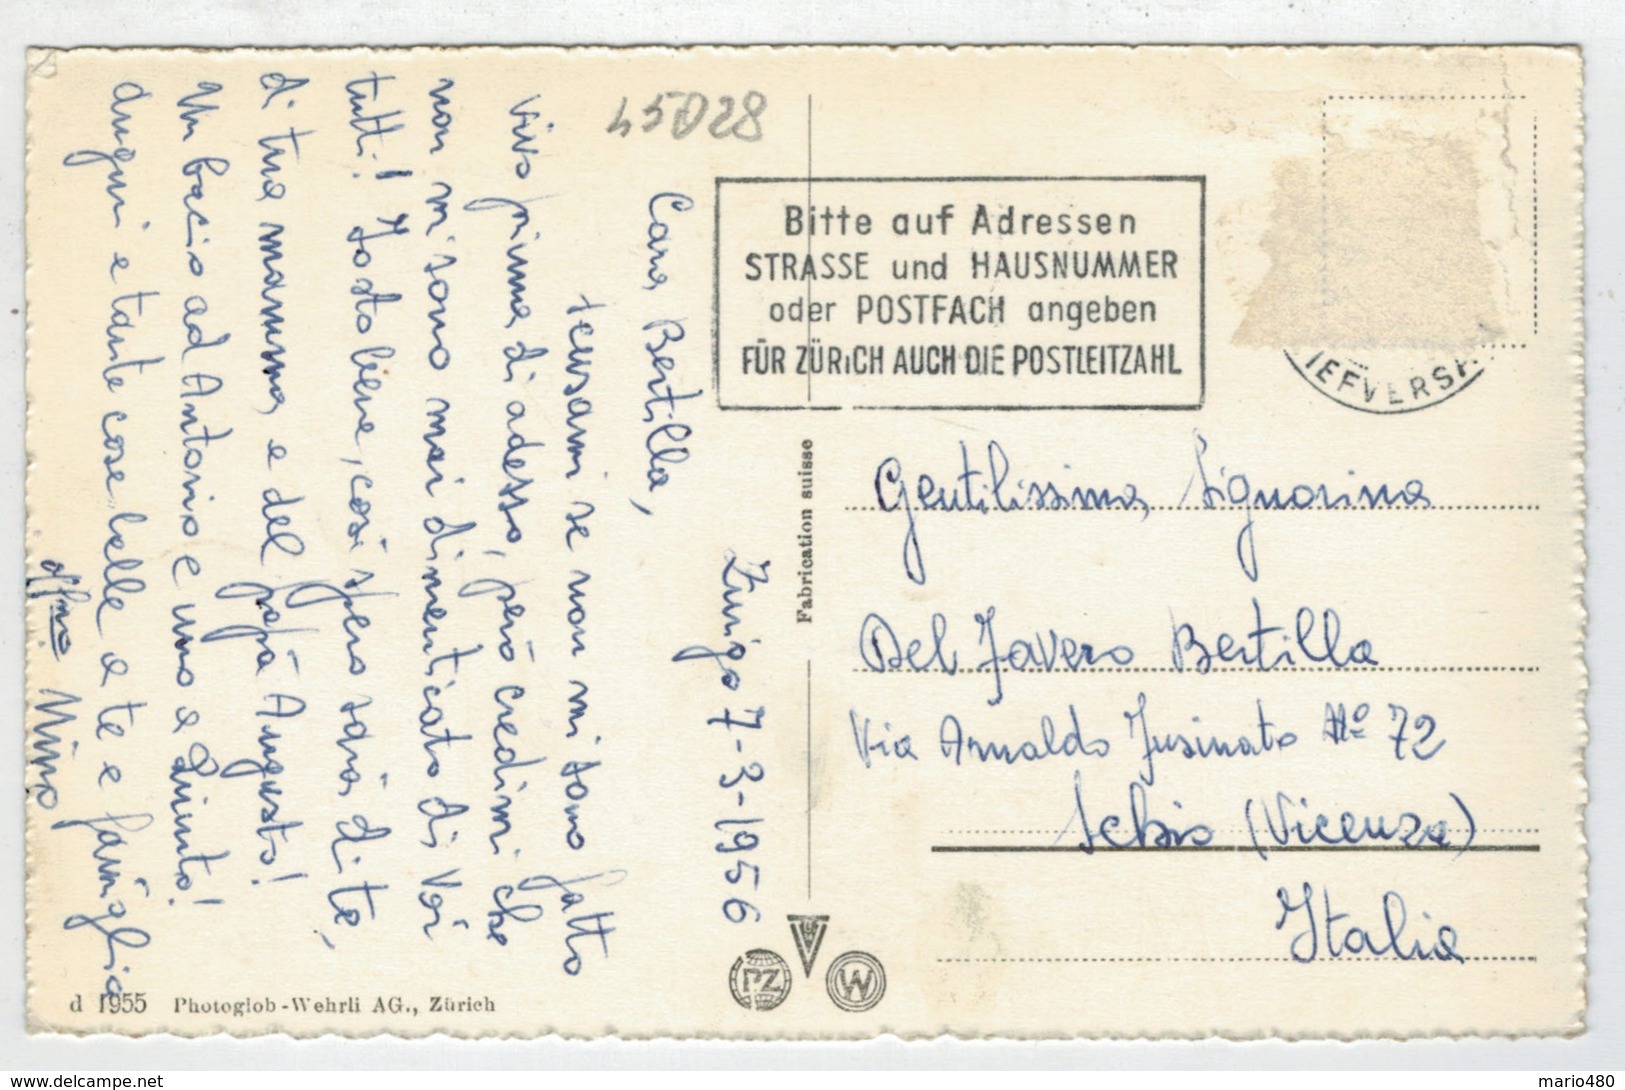 45D28
Zurigo 7-3-1956
Cara Bertilla,
scusami se non mi sono fatto
vivo prima di adesso, però credimi che
non mi sono mai dimenticato di voi
tutti! Io sto bene, così spero sarà di te,
di tua mamma e del papà Augusto!
Un bacio ad Antonio e uno a Quinto!
Auguri e tante cose belle a te e famiglia
aff.mo Nino
Bitte auf Adressen
STRASSE und HAUSNUMMER
oder POSTFACH angeben
FÜR ZÜRICH AUCH DIE POSTLEITZAHL
IEFVERS
Fabrication suisse
Gentilissima Signorina
Del Favero Bertilla
Via Arnaldo Fusinato No 72
Schio (Vicenza)
Italia
PZ
W
d 1955 Photoglob-Wehrli AG., Zürich
www.delcampe.net
mario480